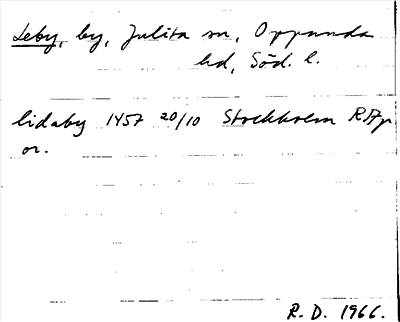 Leby, by, Julita sn, Oppunda
hd, Söd. l.
lidaby 1457 20/10 Stockholm RAp
or.
R. D. 1966.